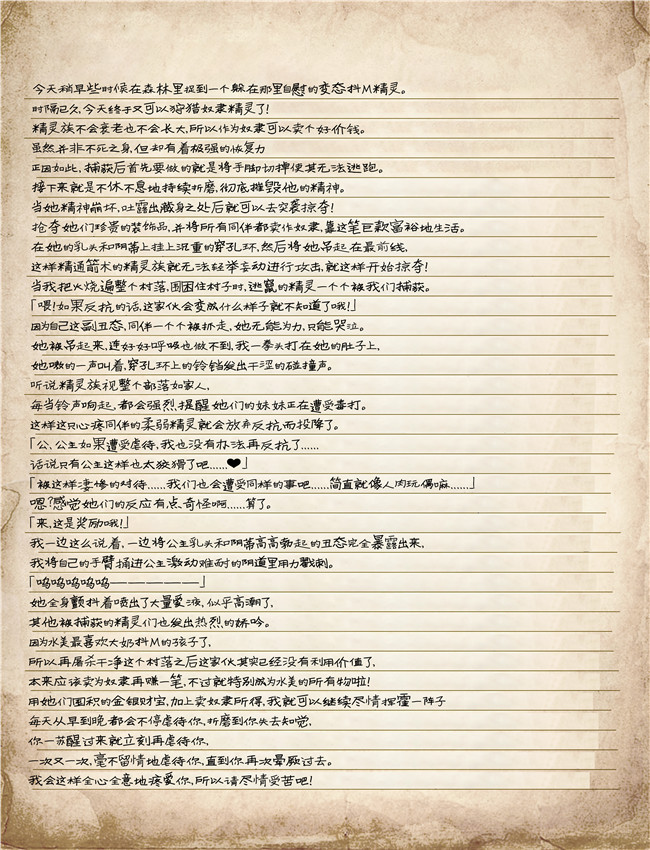 今天稍早些时候在森林里捉到一个躲在那里自慰的变态抖M精灵。
时隔已久,今天终于又可以狩猎奴隶精灵了!
精灵族不会衰老也不会长大,所以作为奴隶可以卖个好价钱。
虽然并非不死之身,但却有着极强的恢复力
正因如此,捕获后首先要做的就是将手脚切掉使其无法逃跑。
接下来就是不休不息地持续折磨,彻底摧毁他的精神。
当她精神崩坏,吐露出藏身之处后就可以去突袭掠夺!
抢夺她们珍贵的装饰品,并将所有同伴都卖作奴隶,靠这笔巨款富裕地生活。
在她的乳头和阴蒂上挂上沉重的穿孔环,然后将她吊起在最前线,
这样精通箭术的精灵族就无法轻举妄动进行攻击,就这样开始掠夺!
当我把火烧遍整个村落,围困住村子时,逃窜的精灵一个个被我们捕获。
「喂!如果反抗的话,这家伙会变成什么样子就不知道了哦!」
因为自己这副丑态,同伴一个个被抓走,她无能为力,只能哭泣。
她被吊起来,连好好呼吸也做不到,我一拳头打在她的肚子上,
她嗷的一声叫着,穿孔环上的铃铛绽出干涩的碰撞声。
听说精灵族视整个部落如家人,
每当铃声响起,都会强烈提醒她们的妹妹正在遭受毒打。
这样这只心疼同伴的柔弱精灵就会放弃反抗而投降了。
「公,公主如果遭受虐待,我也没有办法再反抗了……
话说只有公主这样也太狡猾了吧……❤」
「被这样凄惨的对待……我们也会遭受同样的事吧……简直就像人肉玩偶嘛……」
嗯?感觉她们的反应有点奇怪啊……算了。
「来,这是奖励哦!」
我一边这么说着,一边将公主乳头和阴蒂高高勃起的丑态完全暴露出来,
我将自己的手臂捅进公主激动难耐的阴道里用力戳刺。
「呜呜呜呜呜——————」
她全身颤抖着喷出了大量爱液,似乎高潮了,
其他被捕获的精灵们也绽出热烈的娇吟。
因为水美最喜欢大奶抖M的孩子了,
所以再屠杀干净这个村落之后这家伙其实已经没有利用价值了,
本来应该卖为奴隶再赚一笔,不过就特别成为水美的所有物啦!
用她们囤积的金银财宝,加上卖奴隶所得,我就可以继续尽情挥霍一阵子
每天从早到晚都会不停虐待你,折磨到你失去知觉,
你一苏醒过来就立刻再虐待你,
一次又一次,毫不留情地虐待你,直到你再次晕厥过去。
我会这样全心全意地疼爱你,所以请尽情受苦吧!